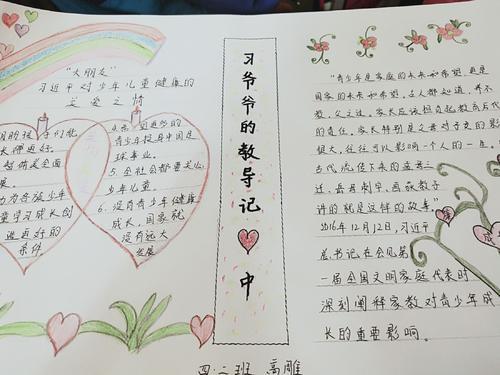 "大朋友"
习近平对少年儿童健康的
关爱之情
条件
4.
青少年投身中国足
球事业。
5.全社会都要关心
少年儿童。
6.没有青少年健康
成长，国家就
没有远大
发展
习爷爷的教导记 中
"青少年是家庭的未来和希望，更是
国家的未来和希望。古人都知道，养不
教，父之过。家长应该担负起教育后代
的责任。家长特别是父母对子女的影
很大，往往可以影响一个人的一生。
古代流传下来的孟母三
迁，岳母刺字，画荻教子
讲的就是这样的故事。"
2016年12月12日，习近
总书记在会见第
一届全国文明家庭代表时
深刻阐释家教对青少年成
长的重要影响。
四·二班 高雕